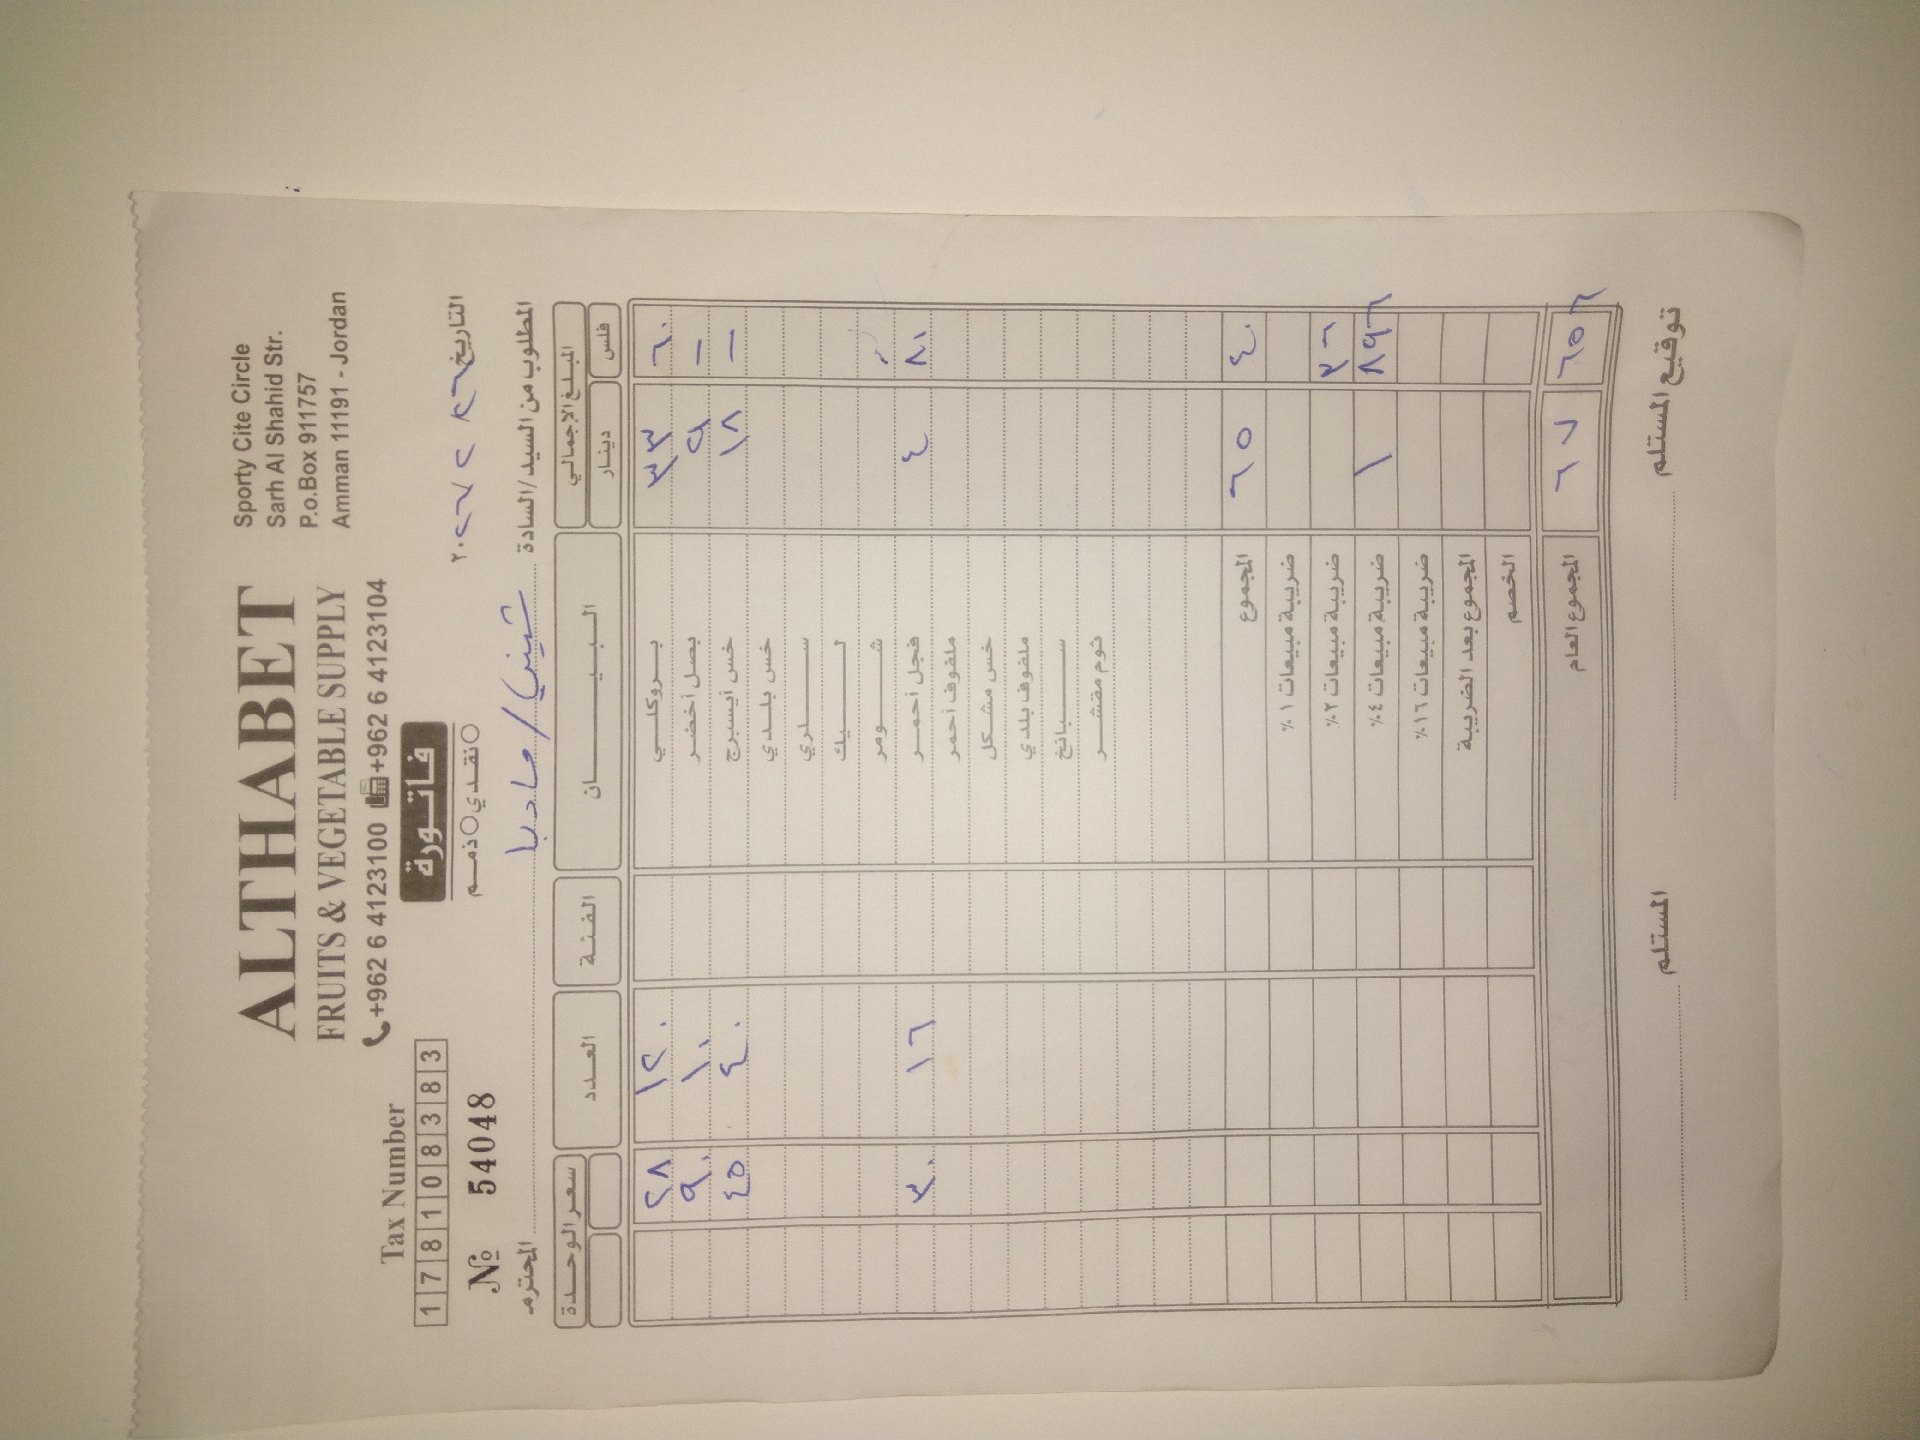 ALTHABET
FRUITS & VEGETABLE SUPPLY
+962 6 4123100 +962 6 4123104
Sporty Cite Circle
Sarh Al Shahid Str.
P.o.Box 911757
Amman 11191 - Jordan
Tax Number
1 7 8 1 0 8 3 8 3
فاتورة
نقدي ذمم
№ 54048
التاريخ
المطلوب من السيد/السادة / مادبا المحترم
المبلغ الإجمالي البيان الفئة العدد سعر الوحدة
فلس دينار
٦٠ ٣٣ بروكلي ١٢٠ ٢٨
— ٩ بصل أخضر ١٠ ٩٠
— ١٨ خس أيسبرج ٤٠ ٤٥
خس بلدي
سلري
ليك
شومر
٨٠ ٤ فجل أحمر ١٦ ٣٠
ملفوف أحمر
خس مشكل
ملفوف بلدي
سبانخ
ثوم مقشر
٤٠ ٦٥ المجموع
ضريبة مبيعات ١%
٣٦ ضريبة مبيعات ٢%
٨٩٦ ١ ضريبة مبيعات ٤%
ضريبة مبيعات ١٦%
المجموع بعد الضريبة
الخصم
٦٥٦ ٦٧ المجموع العام
توقيع المستلم المستلم